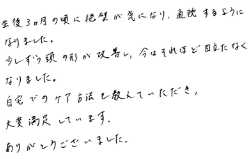 生後3ヵ月の頃に絶壁が気になり、直視するように
なりました。
少しずつ頭の形が改善し、今はそれほど目立たなく
なりました。
自宅でのケア方法も教えていただき、
大変満足しています。
ありがとうございました。